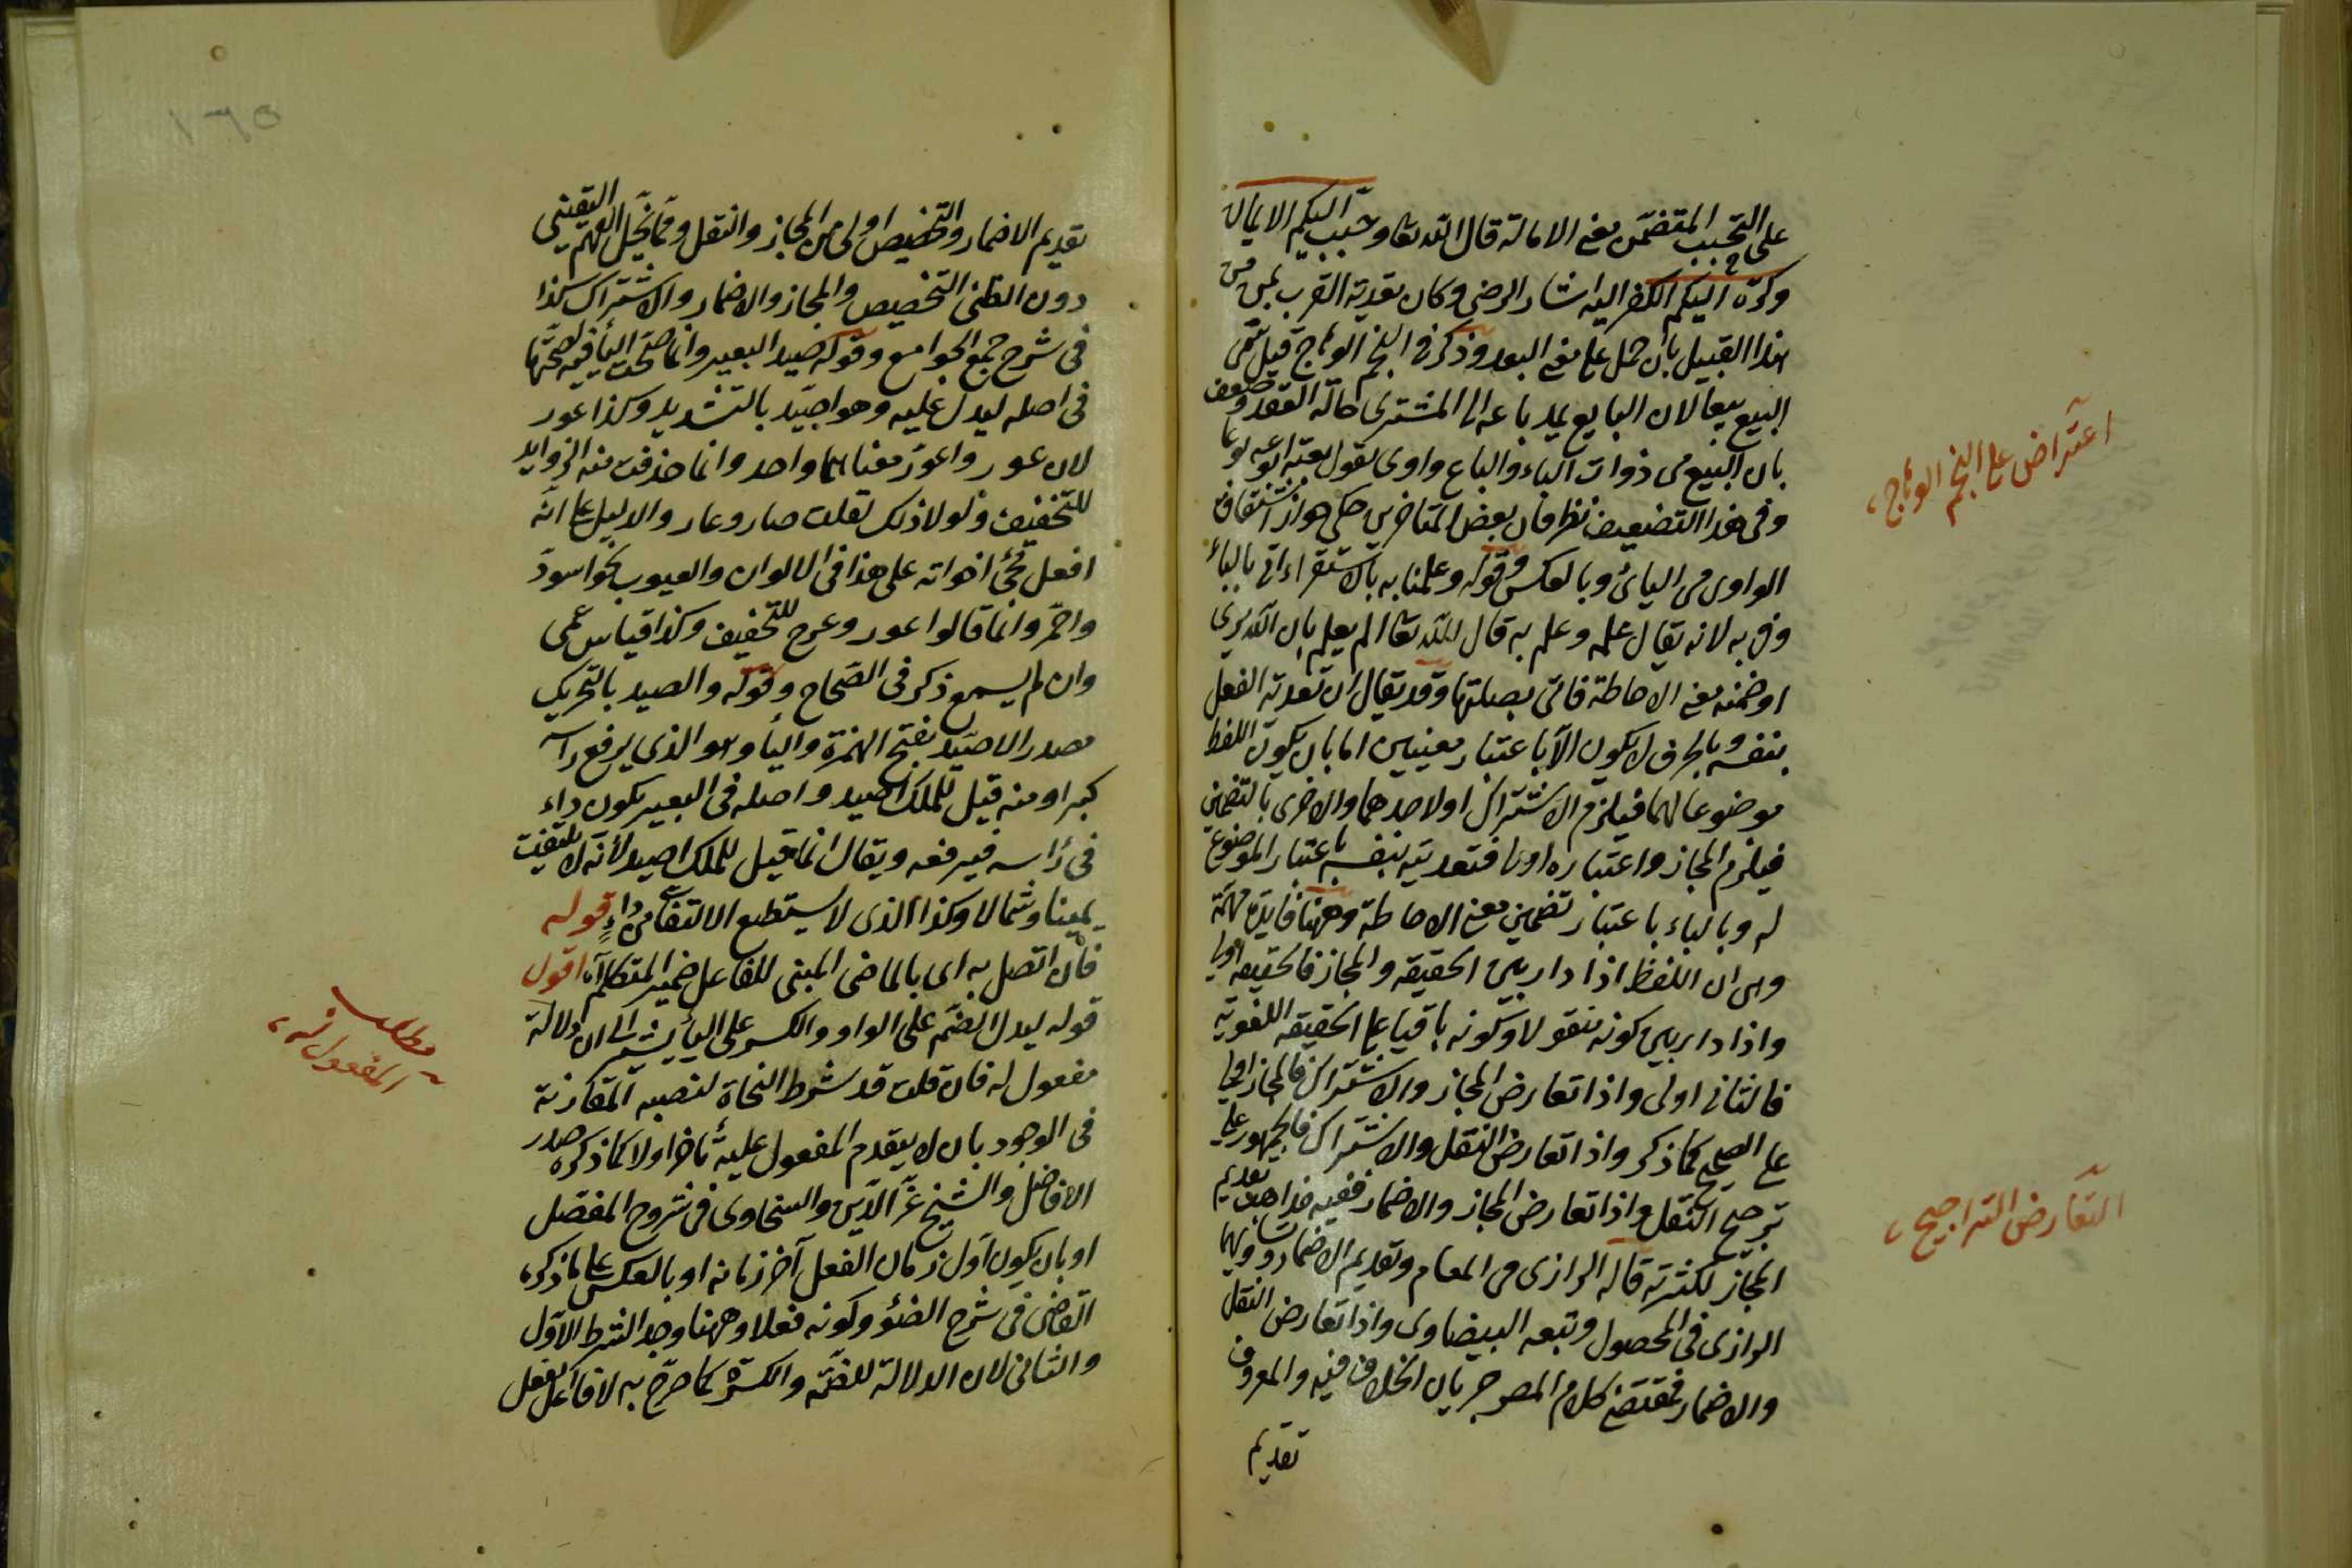 على التحبيب المتضمن معنى الامالة قال الله تعا وحبب اليكم الايمان
وكره اليكم الكفر اليه اشار الرضى وكان تعدية القرب بمن من
هذا القبيل بان حمل على معنى البعد وذكر فى النجم الوهاج قيل سمى
البيع بيعا لان البايع يمد باعه الى المشترى حالة العقد وضعف
بان البيع من ذوات الياء والباع واوى تقول بعته ابوعه بوعا
وفى هذا التضعيف نظر فان بعض المتاخرين حكى جواز اشتقاق
الواوى من اليائى وبالعكس وقوله وعلمنا به باستقراء اتى بالباء
وفى به لانه يقال علمه وعلم به قال الله تعا الم يعلم بان الله يرى
او ضمنه معنى الاحاطة فاتى بصلتها وقد يقال ان تعدية الفعل
بنفسه وبالحرف لا يكون الا باعتبار معنيين اما بان يكون اللفظ
موضوعا لهما فيلزم الاشتراك او لاحدهما والاخرى بالتضمين
فيلزم المجاز واعتباره اولى فتعديته بنفسه باعتبار الموضوع
له وبالباء باعتبار تضمين معنى الاحاطة وههنا فايدة مهمة
وهى ان اللفظ اذا دار بين الحقيقه والمجاز فالحقيقه اولى
واذا دار بين كونه منقولا وكونه باقيا على الحقيقه اللغوية
فالثانى اولى واذا تعارض المجاز والاشتراك فالمجاز اولى
على الصحيح كما ذكر واذا تعارض النقل والاشتراك فالجمهور على
ترجيح النقل واذا تعارض المجاز والاضمار ففيه مذاهب تقديم
المجاز لكثرته قاله الرازى فى المعام وتقديم الاضمار وتساويهما
الرازى فى المحصول وتبعه البيضاوى واذا تعارض النقل
والاضمار فمقتضى كلام المص جريان الخلاف فيه والمعروف
تقديم
اعتراض على النجم الوهاج
التعارض التراجيح
١٦٥
تقديم الاضمار والتخصيص اولى من المجاز والنقل ومما يخل الفهم اليقينى
دون الظنى التخصيص والمجاز والاضمار والاشتراك كذا
فى شرح جمع الجوامع وقوله صيد البعير وانما صحت الياء فيه لصحتها
فى اصله ليدل عليه وهو اصيد بالتشديد وكذا عور
لان عور واعور معناهما واحد وانما حذفت منه الزوايد
للتخفيف ولولا ذلك لقلت صار وعار والدليل على انه
افعل مجئ اخواته على هذا فى الالوان والعيوب نحو اسود
واحمر وانما قالوا عور وعرج للتخفيف وكذا قياس عمى
وان لم يسمع ذكر فى الصحاح وقوله والصيد بالتحريك
مصدر الاصيد بفتح الهمزة والياء وهو الذى يرفع راسه
كبرا ومنه قيل للملك اصيد واصله فى البعير يكون داء
فى راسه فيرفعه ويقال انما قيل للملك اصيد لانه لا يلتفت
يمينا وشمالا وكذا الذى لا يستطيع الالتفات من داء قوله
فان اتصل به اى بالماضى المبنى للفاعل ضمير المتكلم آه اقول
قوله ليدل الضم على الواو والكسر على الياء يشير الى ان دلالة
مفعول له فان قلت قد شرط النحاة لنصبه المقارنة
فى الوجود بان لا يتقدم المفعول عليه تاخرا ولا كما ذكره صدر
الافاضل والشيخ عز الدين والسخاوى فى شروح المفصل
او بان يكون اول زمان الفعل آخر زمانه او بالعكس على ما ذكره
القاضى فى شرح الضوء وكونه فعلا وههنا وجد الشرط الاول
والثانى لان الدلالة للضمة والكسرة كما صرح به لا فاعل لفعل
مطلب
المفعول له